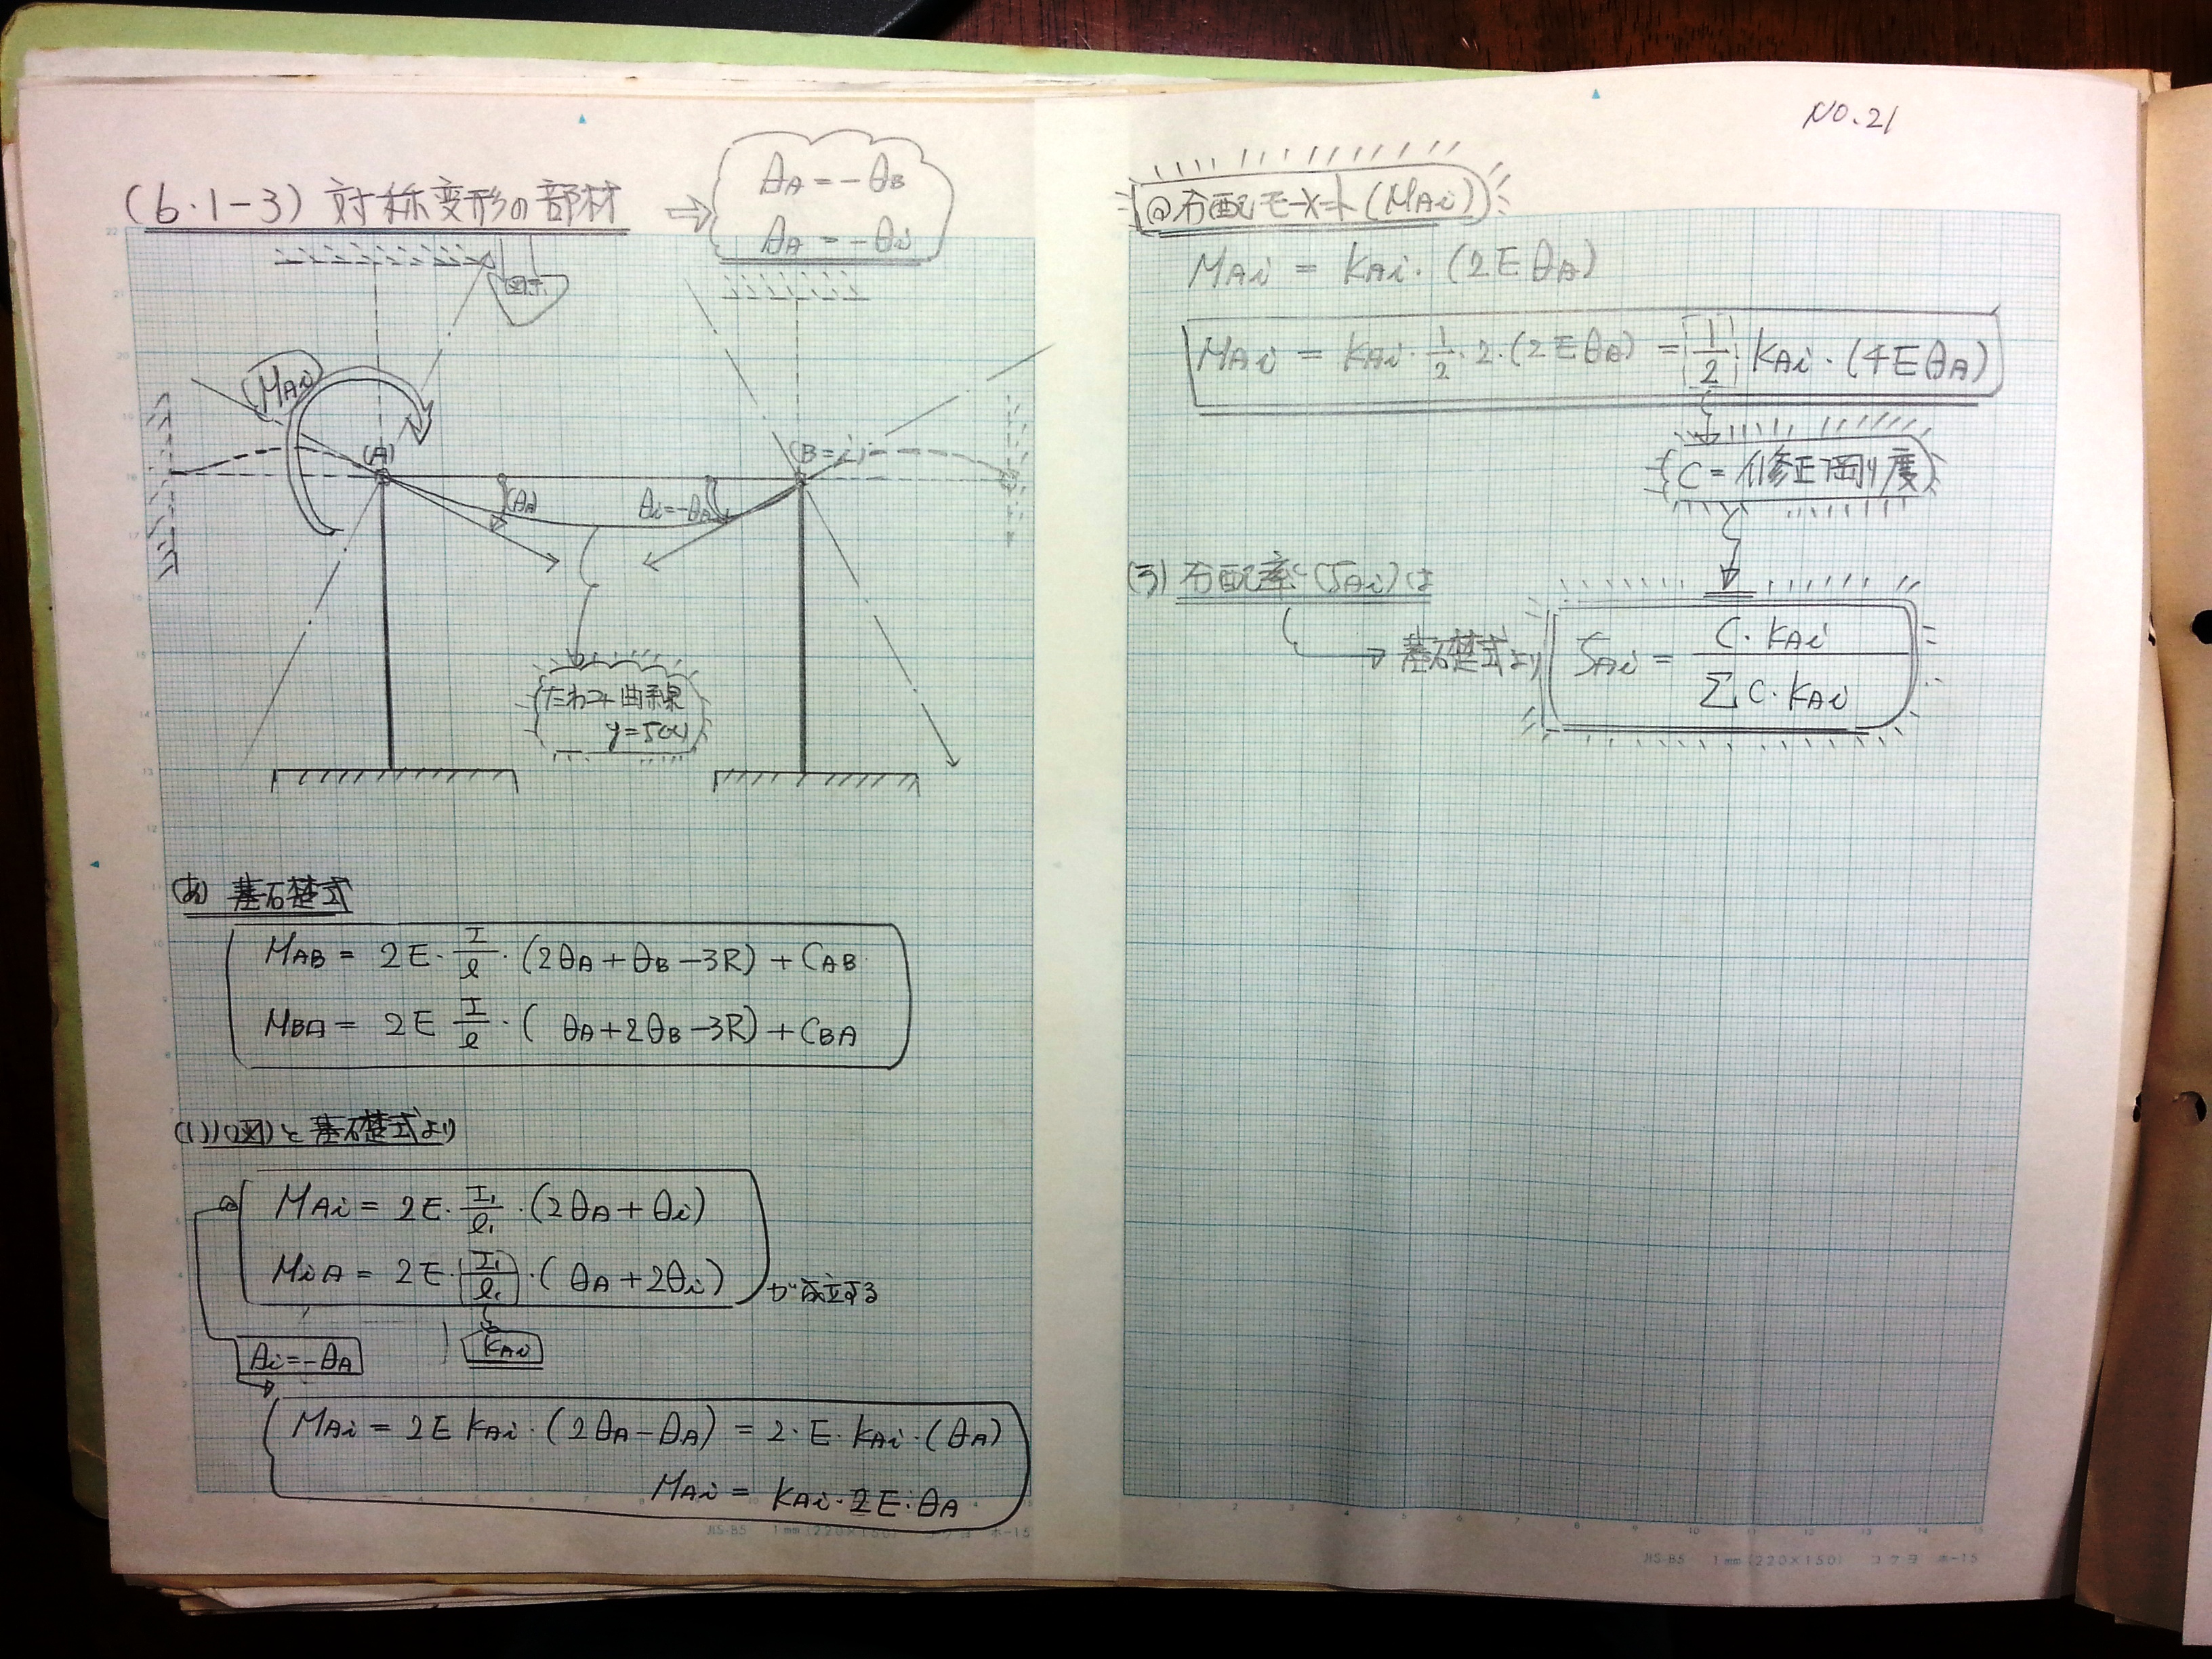 NO.21
(6.1-3) 対称変形の部材 ⇒ θA = -θB
θA = -θi
図示
MAi
(A)
(B=i)
θA
θi=-θA
たわみ曲線
y=f(x)
(あ) 基礎式
MAB = 2E・I/l・(2θA+θB-3R)+CAB
MBA = 2E I/l・( θA+2θB-3R)+CBA
(い) (図)と基礎式より
MAi = 2E・I1/l1・(2θA+θi)
MiA = 2E・I1/l1・( θA+2θi) が成立する
θi=-θA
KAi
MAi = 2E KAi・(2θA-θA) = 2・E・KAi・(θA)
MAi = KAi・2E・θA
@分配モーメント(MAi)
MAi = KAi・(2EθA)
MAi = KAi・1/2・2・(2EθA) = 1/2 KAi・(4EθA)
C=修正剛度
(う) 分配率(fAi)は
基礎式より fAi = C・KAi / ΣC・KAi
JIS-B5 1mm(220×150) コクヨ ホ-15
JIS-B5 1mm(220×150) コクヨ ホ-15